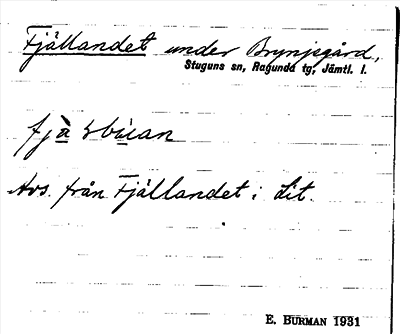 Fjällandet under Brynjegård,
Stuguns sn, Ragunda tg, Jämtl. l.
fjà
Avs. från Fjällandet i Lit.
E. BURMAN 1931